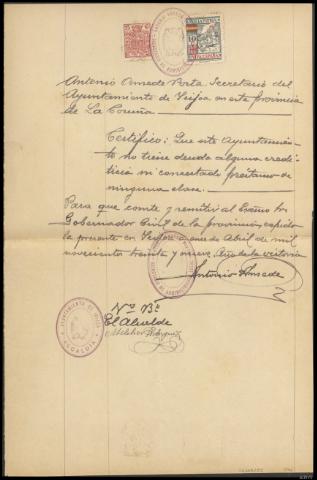 Antonio Amede Porta Secretario del
Ayuntamiento de Teijoa en esta provincia
de La Coruña
Certifico: Que este Ayuntamien-
to no tiene deuda alguna credi-
ticia ni concertado préstamo de
ninguna clase.
Para que conste y remitir al Excmo Sr
Gobernador Civil de la provincia, expido
la presente en a once de Abril de mil
novecientos treinta y nueve. Año de la Victoria
Antonio Amede
Vº Bº
El Alcalde
Melchor
ALCALDIA